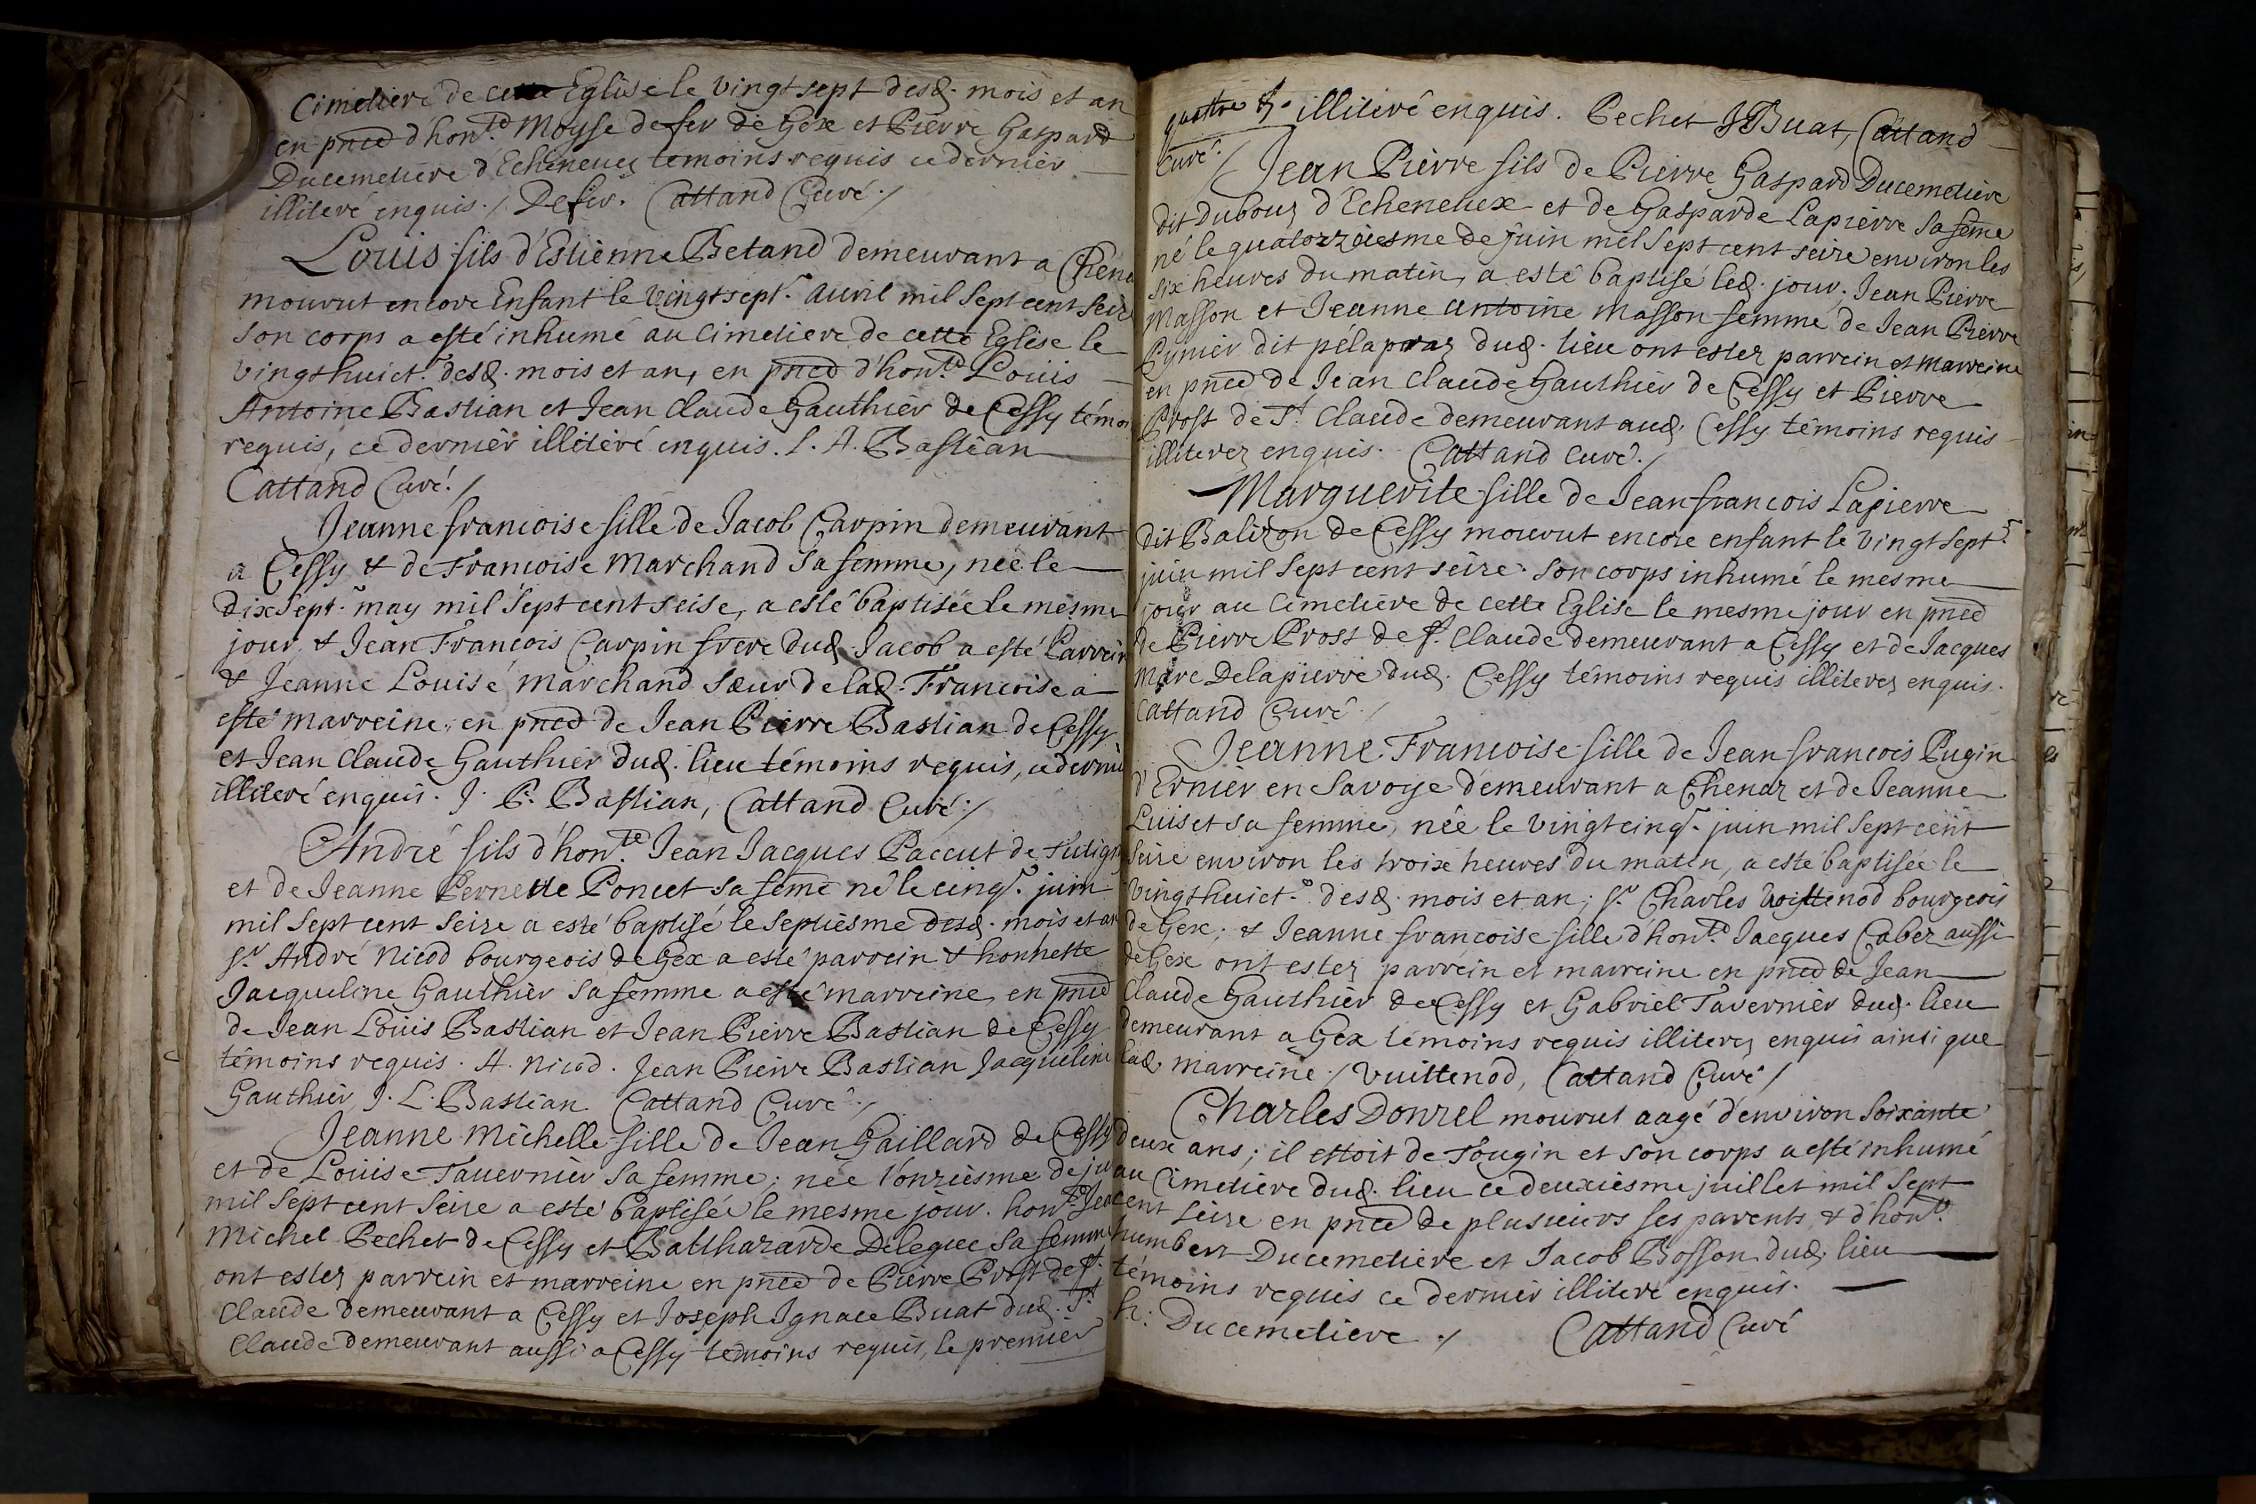 Cimetiere de cette Eglise le vingt sept desd. mois et an
en pnce d'honte Moyse de fer de Gex et Pierre Gaspard
Ducemetiere d'Echenevez temoins requis ce dernier
illiteré enquis./ Defer. Cattand Curé./
Louis fils d'Estienne Betand demeurant a Chena
mourut encore Enfant le vingt sept.e Avril mil sept cent seiz
son corps a esté inhumé au cimetiere de cette Eglise le
vingthuict.e desd. mois et an, en pnce d'honte Louis
Antoine Bastian et Jean Claude Gauthier de Cessy témoi
requis, ce dernier illiteré enquis. L. A. Bastian
Cattand Curé./
Jeanne francoise fille de Jacob Carpin demeurant
a Cessy & de Francoise Marchand sa femme, née le
dix sept.e may mil sept cent seise, a esté baptisée le mesme
jour & Jean Francois Carpin frere dud. Jacob a esté Parrein
& Jeanne Louise Marchand sœur de lad. Francoise a
esté marreine, en pnce de Jean Pierre Bastian de Cessy
et Jean Claude Gauthier dud. lieu témoins requis, ce dernier
illiteré enquis. J. P. Bastian, Cattand Curé./
André fils d'honte Jean Jacques Paccut de Tutigny
et de Jeanne Pernette Poncet sa feme né le cinq.e juin
mil sept cent seize a esté baptisé le septiesme desd. mois et an
sr. André Nicod bourgeois de Gex a esté parrein & honneste
Jacqueline Gauthier sa femme a esté marreine, en pnce
de Jean Louis Bastian et Jean Pierre Bastian de Cessy
témoins requis. A. Nicod. Jean Pierre Bastian Jacqueline
Gauthier J. L. Bastian Cattand Curé./
Jeanne Michelle fille de Jean Gaillard de Cessy
et de Louise Tauernier sa femme; née l'onziesme de ju
mil sept cent seize a esté baptisée le mesme jour. honte Jean
Michel Pechet de Cessy et Balthazarde Deleque sa femme
ont estez parrein et marreine en pnce de Pierre Prost de st.
Claude demeurant a Cessy et Joseph Ignace Buat dud. St.
Claude demeurant aussi a Cessy temoins requis, le premier
illiteré enquis. Pechet J Buat, Cattand
Curé./
Jean Pierre fils de Pierre Gaspard Ducemetiere
dit Dubouz d'Echenevex et de Gasparde Lapierre sa feme
né le quatorziesme de juin mil sept cent seize environ les
six heures du matin, a esté baptisé led. jour. Jean Pierre
Masson et Jeanne Antoine Masson femme de Jean Pierre
dit pélapraz dud. lieu ont estez parrein et marreine
en pnce de Jean Claude Gauthier de Cessy et Pierre
Prost de St. Claude demeurant aud. Cessy témoins requis
illiterez enquis. Cattand Curé./
Marguerite fille de Jean francois Lapierre
dit Balizon de Cessy mourut encore enfant le vingt sept.e
juin mil sept cent seize. son corps inhumé le mesme
jour au cimetière de cette Eglise le mesme jour en pnce
de Pierre Prost de st. Claude demeurant a Cessy et de Jacques
Marc Delapierre dud. Cessy témoins requis illiterez enquis.
Cattand Curé./
Jeanne Francoise fille de Jean francois Pugin
d'Ernier en Savoye demeurant a Chenaz et de Jeanne
Luiset sa femme, née le vingt cinq.e juin mil sept cent
seize environ les troix heures du matin, a esté baptisée le
vingthuict.e desd. mois et an; sr. Charles Voittenod bourgeois
de Gex; & Jeanne francoise fille d'honte Jacques Cabez aussi
de Gex ont estez parrein et marreine en pnce de Jean
Claude Gauthier de Cessy et Gabriel Tavernier dud. lieu
demeurant a Gex témoins requis illiterez enquis ainsi que
lad. marreine./ Vuittenod, Cattand Curé/
Charles Donzel mourut aagé d'environ soixante
deux ans; il estoit de Tougin et son corps a esté inhumé
au Cimetiére dud. lieu ce deuxiésme juillet mil sept
cent seize en pnce de plusieurs ses parents, & d'honte
humbert Ducemetiére et Jacob Bosson dud. lieu
témoins requis ce dernier illiteré enquis.
h: Ducemetiere./ Cattand Curé